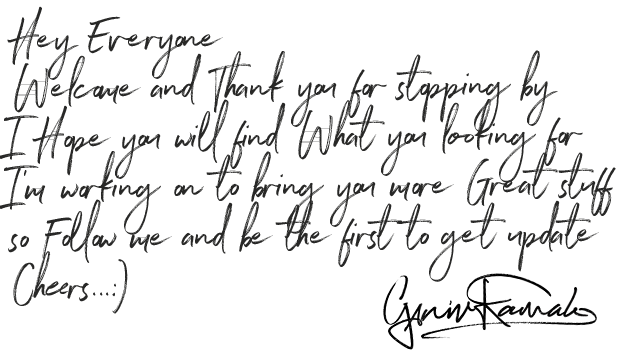 Hey Everyone
Welcome and Thank you for stopping by
I Hope you will find What you looking for
I'm working on to bring you more Great stuff
so Follow me and be the first to get update
Cheers...:)